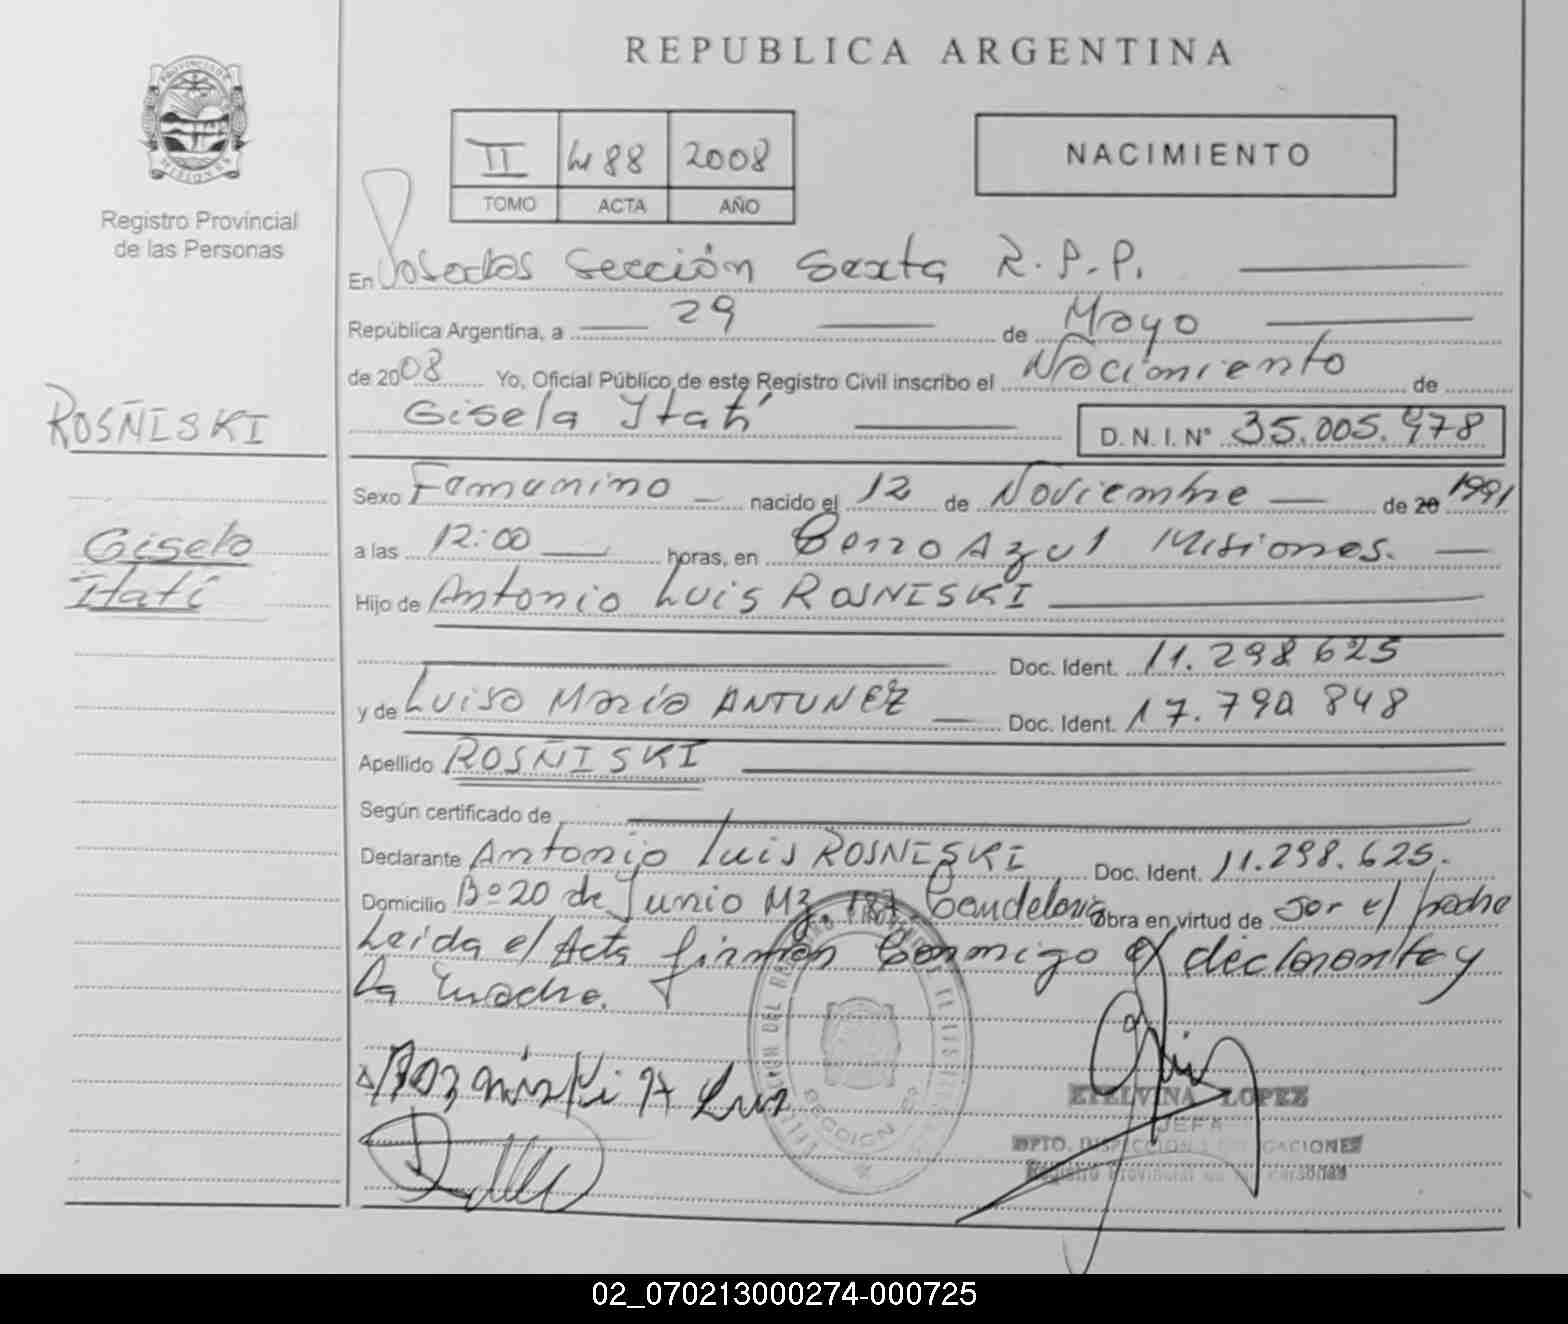 REPUBLICA ARGENTINA
PROVINCIA DE MISIONES
Registro Provincial
de las Personas
II 488 2008
TOMO ACTA AÑO
NACIMIENTO
En Posadas Sección Sexta R.P.P.
República Argentina, a 29 de Mayo
de 2008 Yo, Oficial Público de este Registro Civil inscribo el Nacimiento de
Gisela Itatí D. N. I. Nº 35.005.978
ROSÑISKI
Gisela
Itatí
Sexo Femenino nacido el 12 de Noviembre de 20 1991
a las 12:00 horas, en Cerro Azul Misiones.
Hijo de Antonio Luis ROSNISKI
Doc. Ident. 11.298 625
y de Luisa María ANTUNEZ Doc. Ident. 17.790 848
Apellido ROSÑISKI
Según certificado de
Declarante Antonio Luis ROSNISKI Doc. Ident. 11.298.625.
Domicilio Bº 20 de Junio Mz. 187 Candelaria Obra en virtud de ser el padre
Leida el Acta firman conmigo el declarante y
la madre.
ETELVINA LOPEZ
JEFA
DPTO. INSPECCION
Registro Provincial de las Personas
SECCION
02_070213000274-000725